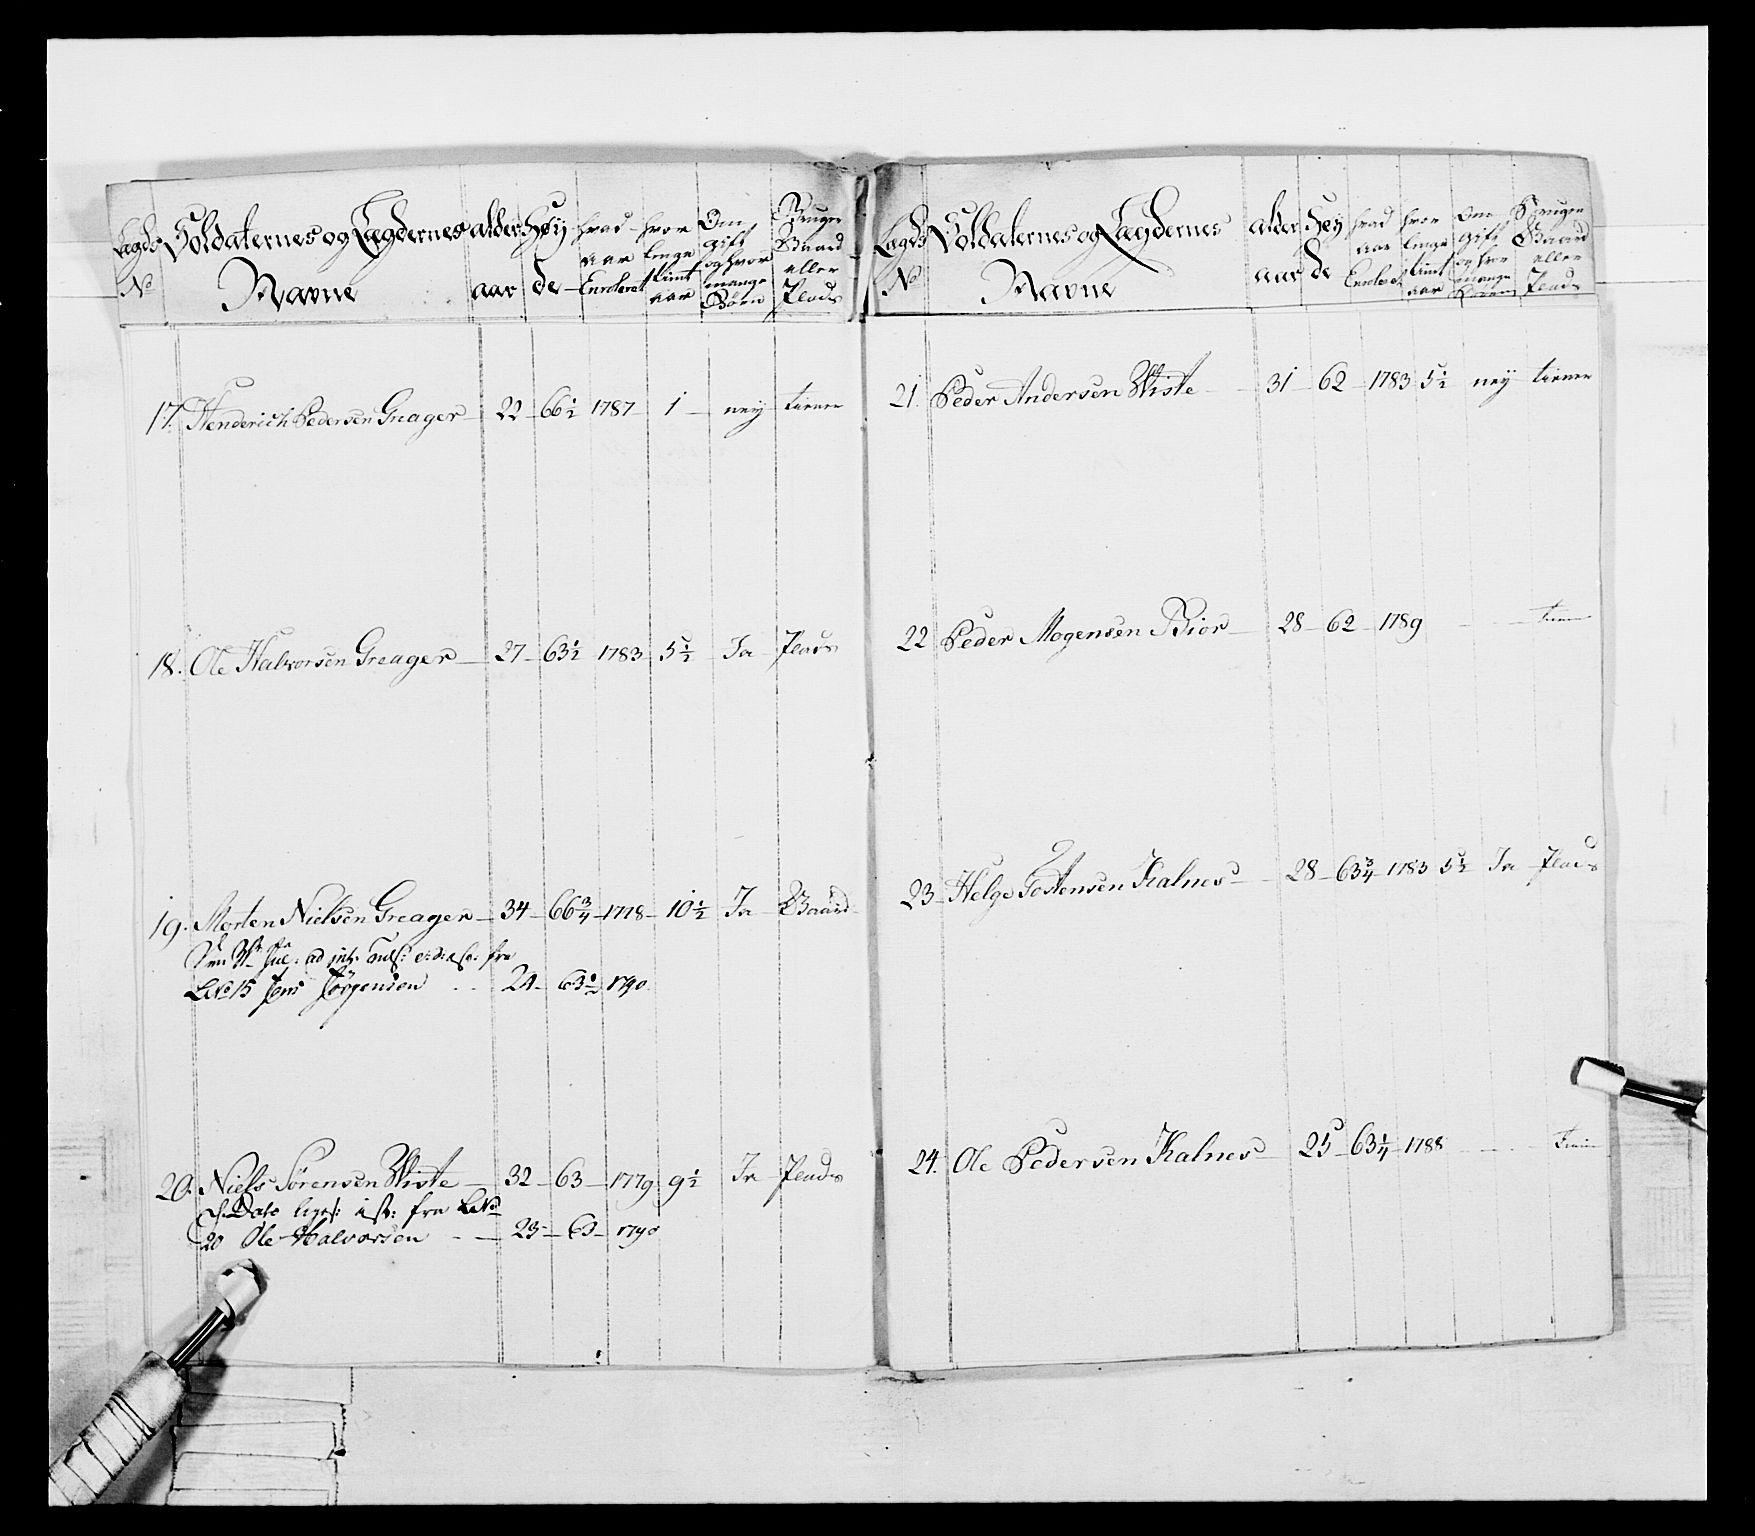 Lægds No | Soldaternes og Lægdernes Navne | alder aar | Høy de | hvad aar Enroleret | hvor lenge tient aar | Om gift og hvor mange Børn | Bruger Gaard eller Plads
17. Henderich Pedersen Greager — 22 — 66½ 1787 — 1 — ney — tiener
18. Ole Halvorsen Greager — 27 — 63½ 1783 5½ — Ja — Plads
19. Morten Nielsen Greager — 34 — 66¾ — 1778 — 10½ — Ja — Gaard
fra
LNo 15 Jens Jörgensen - - 24 — 63½ 1790.
20. Niels Sörensen Wiste — 32 — 63 — 1779 9½ — Ja — Plads
Dato fra LNo
20 Ole Halvorsen - — 23 — 63 — 1790
Lægds No | Soldaternes og Lægdernes Navne | alder aar | Høy de | hvad aar Enroleret | hvor lenge tient aar | Om gift og hvor mange Børn | Bruger Gaard eller Plads
21. Peder Andersen Wiste — 31 — 62 — 1783 5½ ney tiener
22 Peder Mogensen Bior — 28 — 62 — 1789 — tiener
23 — Helge Tostensen Kalnes — 28 — 63¾ — 1783 5½ — Ja — Plads
24. Ole Pedersen Kalnes — 25 — 63¼ — 1788 - - -